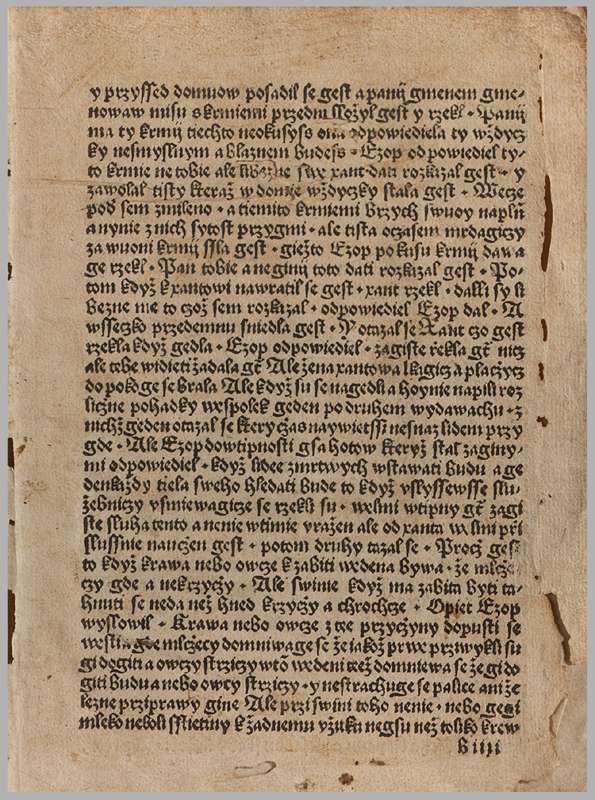 y przyssed domuow posadil se gest a panij gmenem gme-
nowaw misu s krmiemi przedni slozyl gest y rzekl · Panij
ma ty krmij tiechto neokusyss ona odpowiediela ty wzdycz
ky nesmyslnym a blaznem budess · Ezop od powiediel ty-
to krmie ne tobie ale xant dati rozkazal gest · y
zawolal tisty kteraz w domie wzdyczky stala gest · Wecze
pod sem zmileno · a tiemito krmiemi brzych swuoy naplň
a nynie z nich sytost przygmi · ale tista oczasem mrdagiczy
za wuoni krmij ssla gest · giezto Ezop po kusu krmij dawa
ge rzekl · Pan tobie a neginij toto dati rozkazal gest · Po-
tom kdyz k xantowi nawratil se gest · xant rzekl · dalli sy li
bezne me to czoz sem rozkazal · odpowiediel Ezop dal · A
wsseczko przedemnu sniedla gest · Y otazal se Xant czo gest
rzekla kdyz gedla · Ezop odpowiediel · zagiste rzekla gt nicz
ale tebe widieti zadala gt Ale zena xantowa lkagicz a placzycz
do pokoge se brala Ale kdyz su se nagedli a hoynie napili roz
liczne pohadky wespolek geden po druhem wydawachu · z
nichz geden otazal se ktery czas naywietssi nesnaz lidem przy
gde · Ale Ezop dowtipnosti gsa hotow kteryz stal za giny-
mi odpowiediel · kdyz lidee zmrtwych wstawati budu a ge
denkazdy tiela sweho hledati bude to kdyz vslyssewsse slu-
zebniczy vsmiewagicze se rzekli su · welmi wtipny gt zagi
ste sluha tento a nenie wtimie vrazen ale od xanta welmi při
slussnie nauczen gest · potom druhy tazal se · Procz ges
to kdyz krawa nebo owcze k zabiti wedena bywa · ze mlcze-
czy gde a nekrzyczy · Ale swinie kdyz ma zabita byti ta-
hnuti se neda nez hned krzyczy a chrochcze · Opiet Ezop
wyslowil · Krawa nebo owcze z tee przyczyny dopusti se
westi mlczecy domniwage se ze iakoz prwe przwykli su
gi dogiti a owczy strziczy wtō wedeni teez domniewa se ze gi do
giti budu a nebo owcy strziczy · y nestrachuge se palice ani ze
lezne przyprawy gine Ale przi swini toho nenie · nebo gegi
mleko neboli sstietiny k zadnemu vzitku negsu nez toliko krew
B iiii